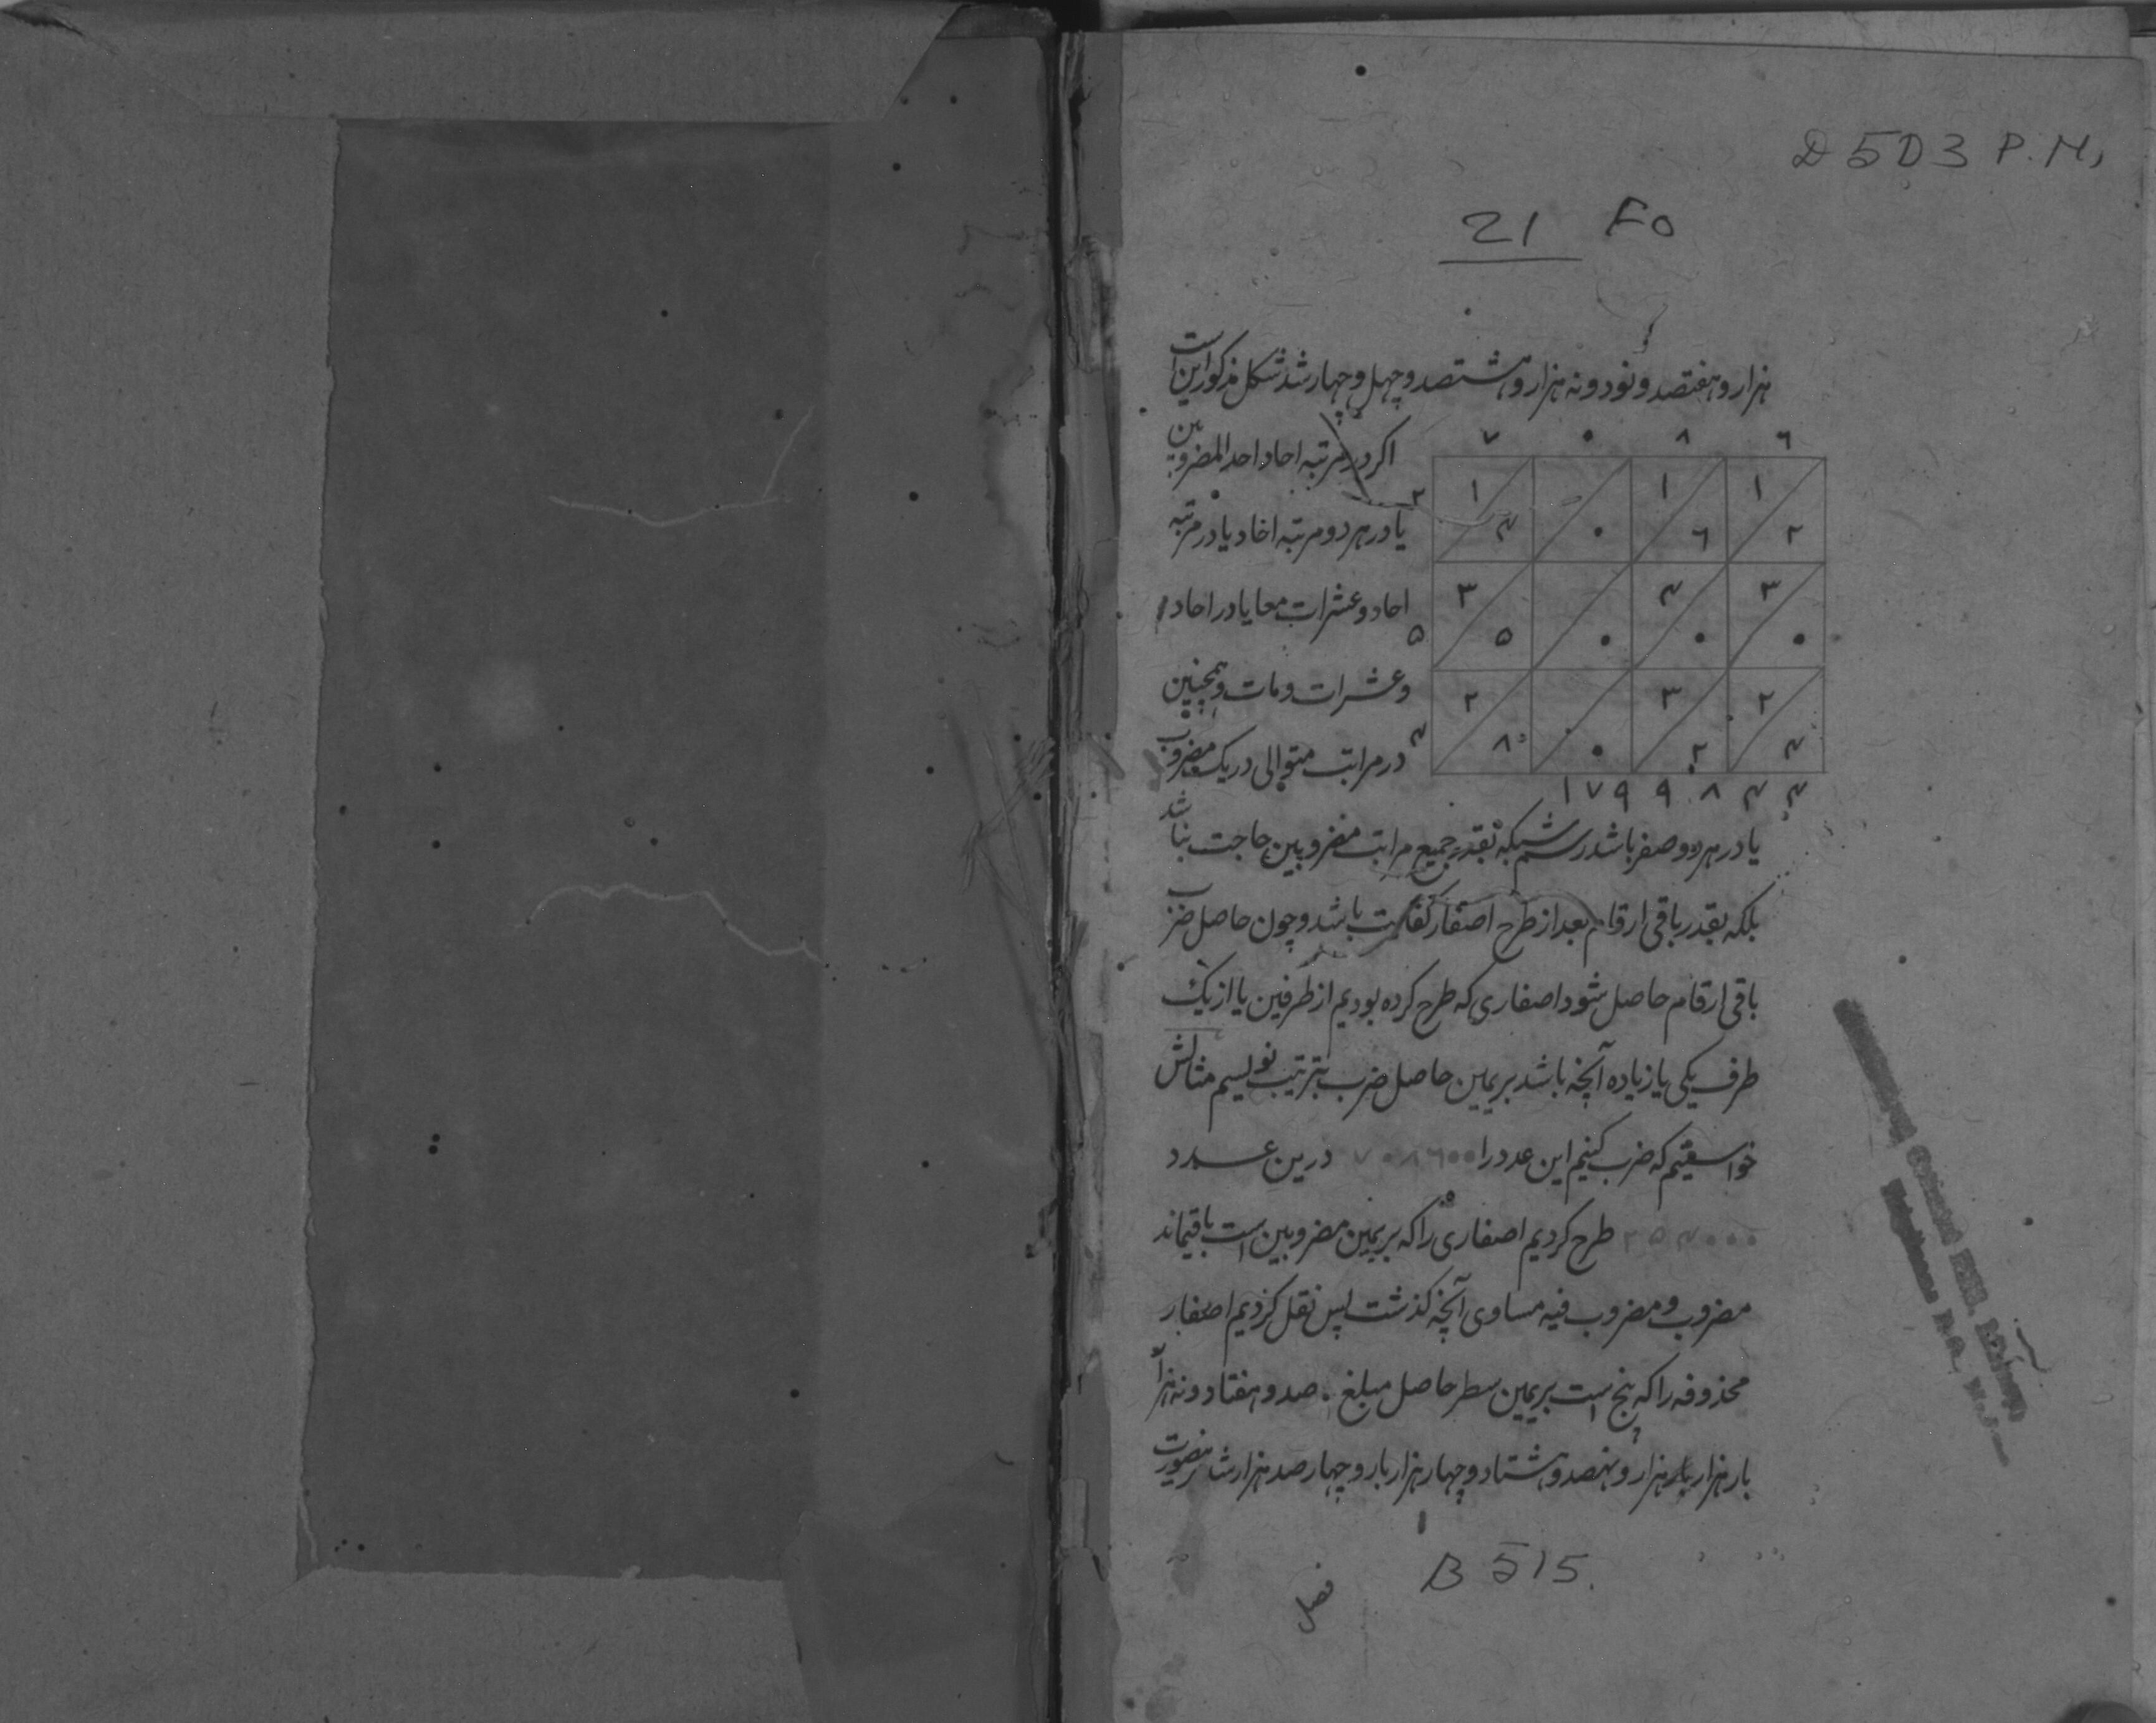 D 503 P.M,
21 Fo
هزار و هفتصد و نود و نه هزار و هشتصد و چهل و چهار شد شکل مذکور این است
اکر در مرتبه احاد احد المضروبین
یا در هر دو مرتبه احاد یا در مرتبه
احاد و عشرات معا یا در احاد
و عشرات و مات و همچنین
در مراتب متوالی در یک مضروب
۷ ۰ ۸ ٦
۲ ۱ ۴ ۰ ۱ ٦ ۱ ۲
۵ ۳ ۵ ۰ ۴ ۰ ۳ ۰
۴ ۲ ۸ ۰ ۳ ۲ ۲ ۴
۱ ۷ ۹ ۹ ۸ ۴ ۴
یا در هر دو صفر باشد رسم شبکه بقدر جمیع مراتب مضروبین حاجت نباشد
بلکه بقدر باقی ارقام بعد از طرح اصفار کفایت باشد و چون حاصل ضرب
باقی ارقام حاصل شود اصفاری که طرح کرده بودیم از طرفین یا از یک
طرف یکی یا زیاده آنچه باشد بر یمین حاصل ضرب بترتیب نویسیم مثالش
خواستیم که ضرب کنیم این عدد را ۷۰۸٦۰۰ درین عدد
۲۵۴۰۰۰ طرح کردیم اصفاری را که بر یمین مضروبین است باقیماند
مضروب و مضروب فیه مساوی آنچه کذشت پس نقل کردیم اصفار
محذوفه را که پنج است بر یمین سطر حاصل مبلغ صد و هفتاد و نه هزار
بار هزار بار هزار و نهصد و هشتاد و چهار هزار بار و چهارصد هزار شد
B 515.
فصل